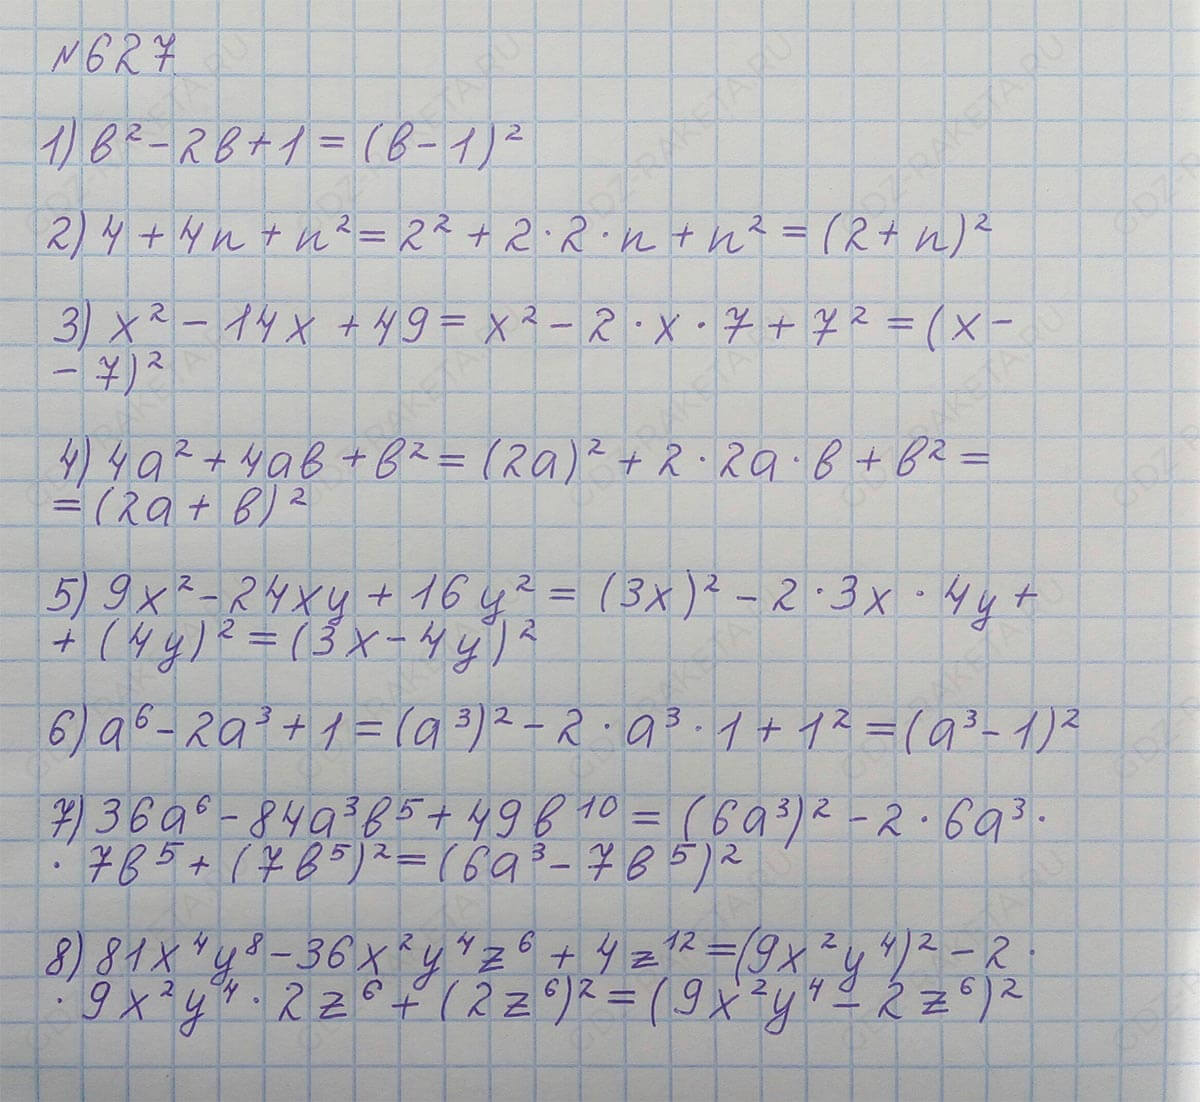 №627
1) в² - 2в + 1 = (в - 1)²
2) 4 + 4n + n² = 2² + 2·2·n + n² = (2 + n)²
3) x² - 14x + 49 = x² - 2·x·7 + 7² = (x -
- 7)²
4) 4a² + 4aв + в² = (2a)² + 2·2a·в + в² =
= (2a + в)²
5) 9x² - 24xy + 16y² = (3x)² - 2·3x·4y +
+ (4y)² = (3x - 4y)²
6) a⁶ - 2a³ + 1 = (a³)² - 2·a³·1 + 1² = (a³ - 1)²
7) 36a⁶ - 84a³в⁵ + 49в¹⁰ = (6a³)² - 2·6a³·
·7в⁵ + (7в⁵)² = (6a³ - 7в⁵)²
8) 81x⁴y⁸ - 36x²y⁴z⁶ + 4z¹² = (9x²y⁴)² - 2·
·9x²y⁴·2z⁶ + (2z⁶)² = (9x²y⁴ - 2z⁶)²
GDZ-RAKETA.RU